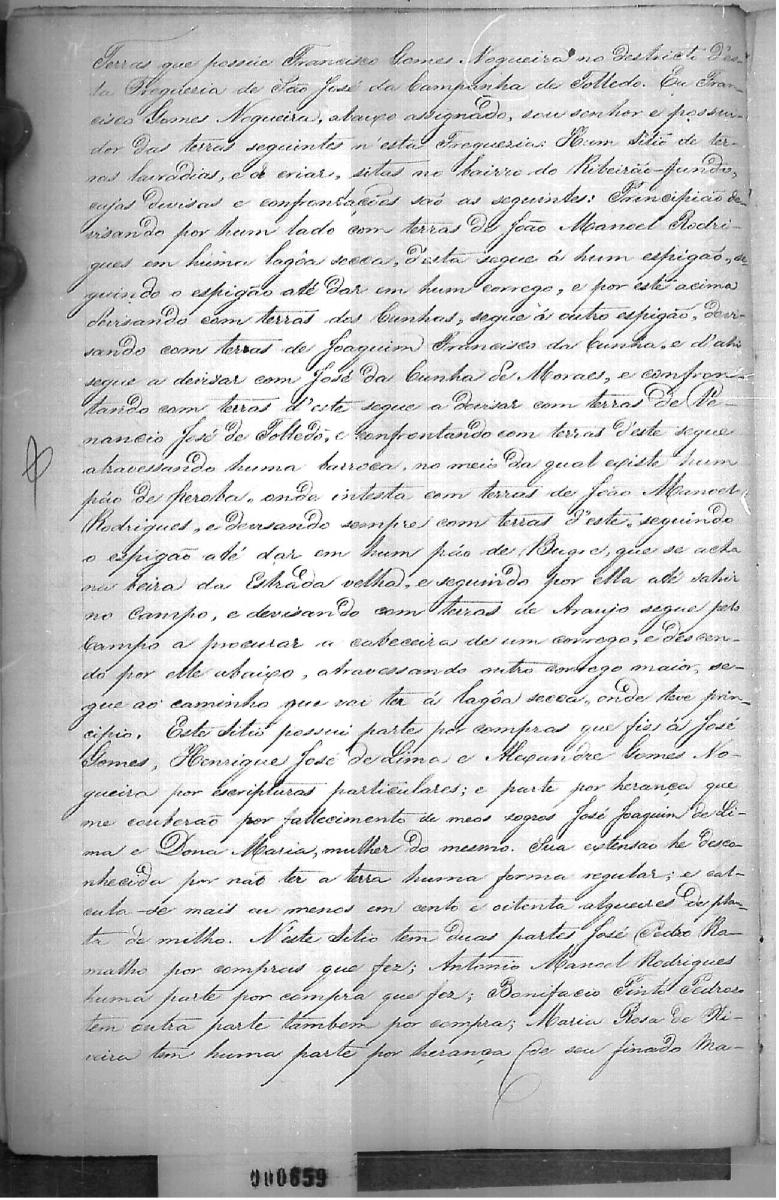 Terras que possúe Francisco Gomes Nogueira no destricto d'es-
ta Fregueria de São José da Campanha de Tolledo. Eu Fran-
cisco Gomes Nogueira, abaixo assignado, sou senhor e possui-
dor das terras seguintes n'esta Fregueria: Hum sitio de ter-
ras lavradias, e de criar, sitas no bairro do Ribeirão-fundo,
cujas divisas e confrontações são as seguintes: Principião de-
visando por hum lado com terras de João Manoel Rodri-
gues em huma lagôa secca, d'esta segue á hum espigão, se-
guindo o espigão até dar em hum corrego, e por este acima
devisando com terras dos Cunhas, segue á outro espigão, devi-
sando com terras de Joaquim Francisco da Cunha, e d'ahi
segue a devisar com José da Cunha de Moraes, e confron-
tando com terras d'este segue a devisar com terras de Ve-
nancio José de Tolledo, e confrontando com terras d'este segue
atravessando huma barroca, no meio da qual existe hum
páo de peroba, onde intesta com terras de João Manoel
Rodrigues, e devisando sempre com terras d'este, seguindo
o espigão até dar em hum páo de Bugre, que se acha
na beira da Estrada velha, e seguindo por ella até sahir
no Campo, e devisando com terras de Araujo segue pelo
Campo a procurar a cabeceira de um corrego, e descen-
do por elle abaixo, atravessando outro corrego maior, se-
gue ao caminho que vai ter á lagôa secca, onde teve prin-
cipio. Este sitio possui parte por compras que fis á José
Gomes, Henrique José de Lima e Alexandre Gomes No-
gueira por escripturas particulares; e parte por herança que
me couberão por fallecimento de meos sogros José Joaquim de Li-
ma e Dona Maria, mulher do mesmo. Sua extensão he desco-
nhecida por não ter a terra huma forma regular; e cal-
cula-se mais ou menos em cento e oitenta alqueires de plan-
ta de milho. N'este sitio tem duas partes José Pedro Ra-
malho por compras que fez; Antonio Manoel Rodrigues
huma parte por compra que fez; Bonifacio Pinto Pedroso
tem outra parte tambem por compra; Maria Rosa de Oli-
veira tem huma parte por herança de seu finado Ma-
000659